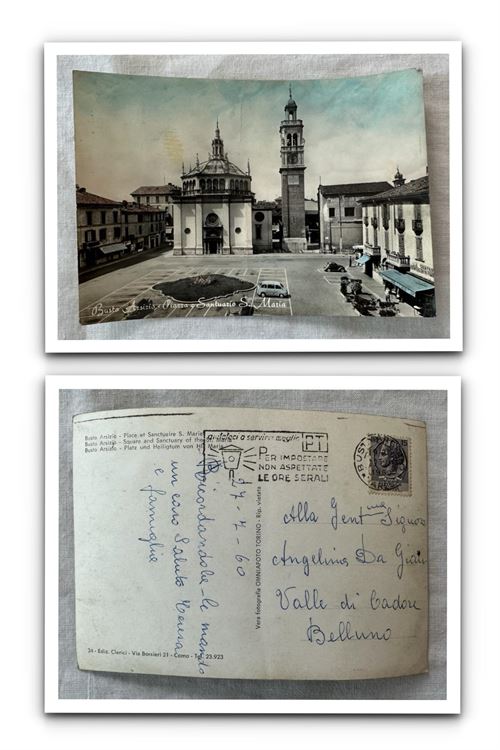 Busto Arsizio - Piazza e Santuario S. Maria
Busto Arsizio - Place et Sanctuaire S. Marie
Busto Arsizio - Square and Sanctuary of the St. Maria
Busto Arsizio - Platz und Heiligtum von HG Maria
aiutateci a servirvi meglio
PT
PER IMPOSTARE
NON ASPETTATE
LE ORE SERALI
BUSTO
17-7-60
Ricordandola le mando
un caro Saluto Teresa
e famiglia
Vera fotografia OMNIAFOTO TORINO - Rip. vietata
Alla Gent.ma Signora
Angelina Da
Valle di Cadore
Belluno
24 - Ediz. Clerici - Via Borsieri 21 - Como - Tel. 23.923